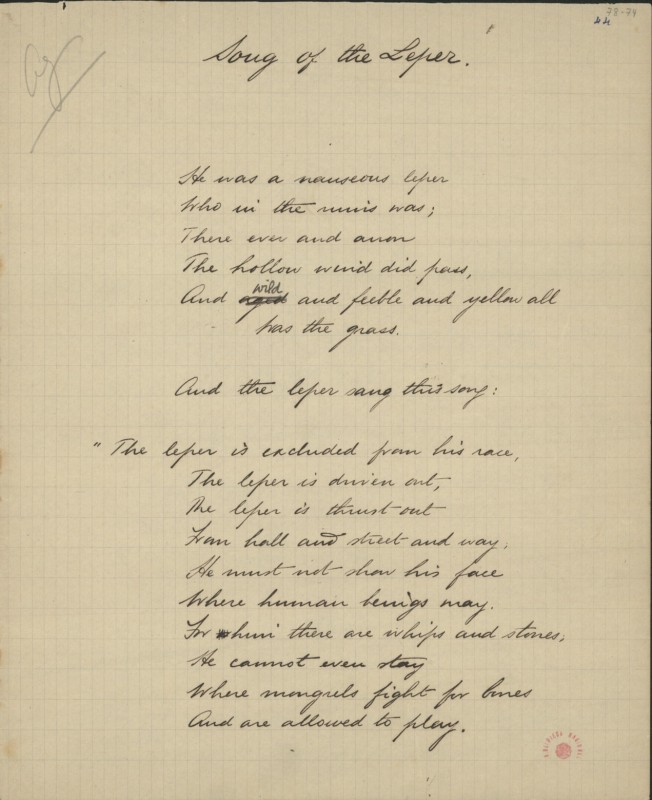 78-74
44
Song of the Leper.
He was a nauseous leper
Who in the ruins was;
There ever and anon
The hollow wind did pass,
And aged wild and feeble and yellow all
Was the grass.
And the leper sang this song:
"The leper is excluded from his race,
The leper is driven out,
The leper is thrust out
From hall and street and way;
He must not show his face
Where human beings may.
For him there are whips and stones;
He cannot even stay
Where mongrels fight for bones
And are allowed to play.